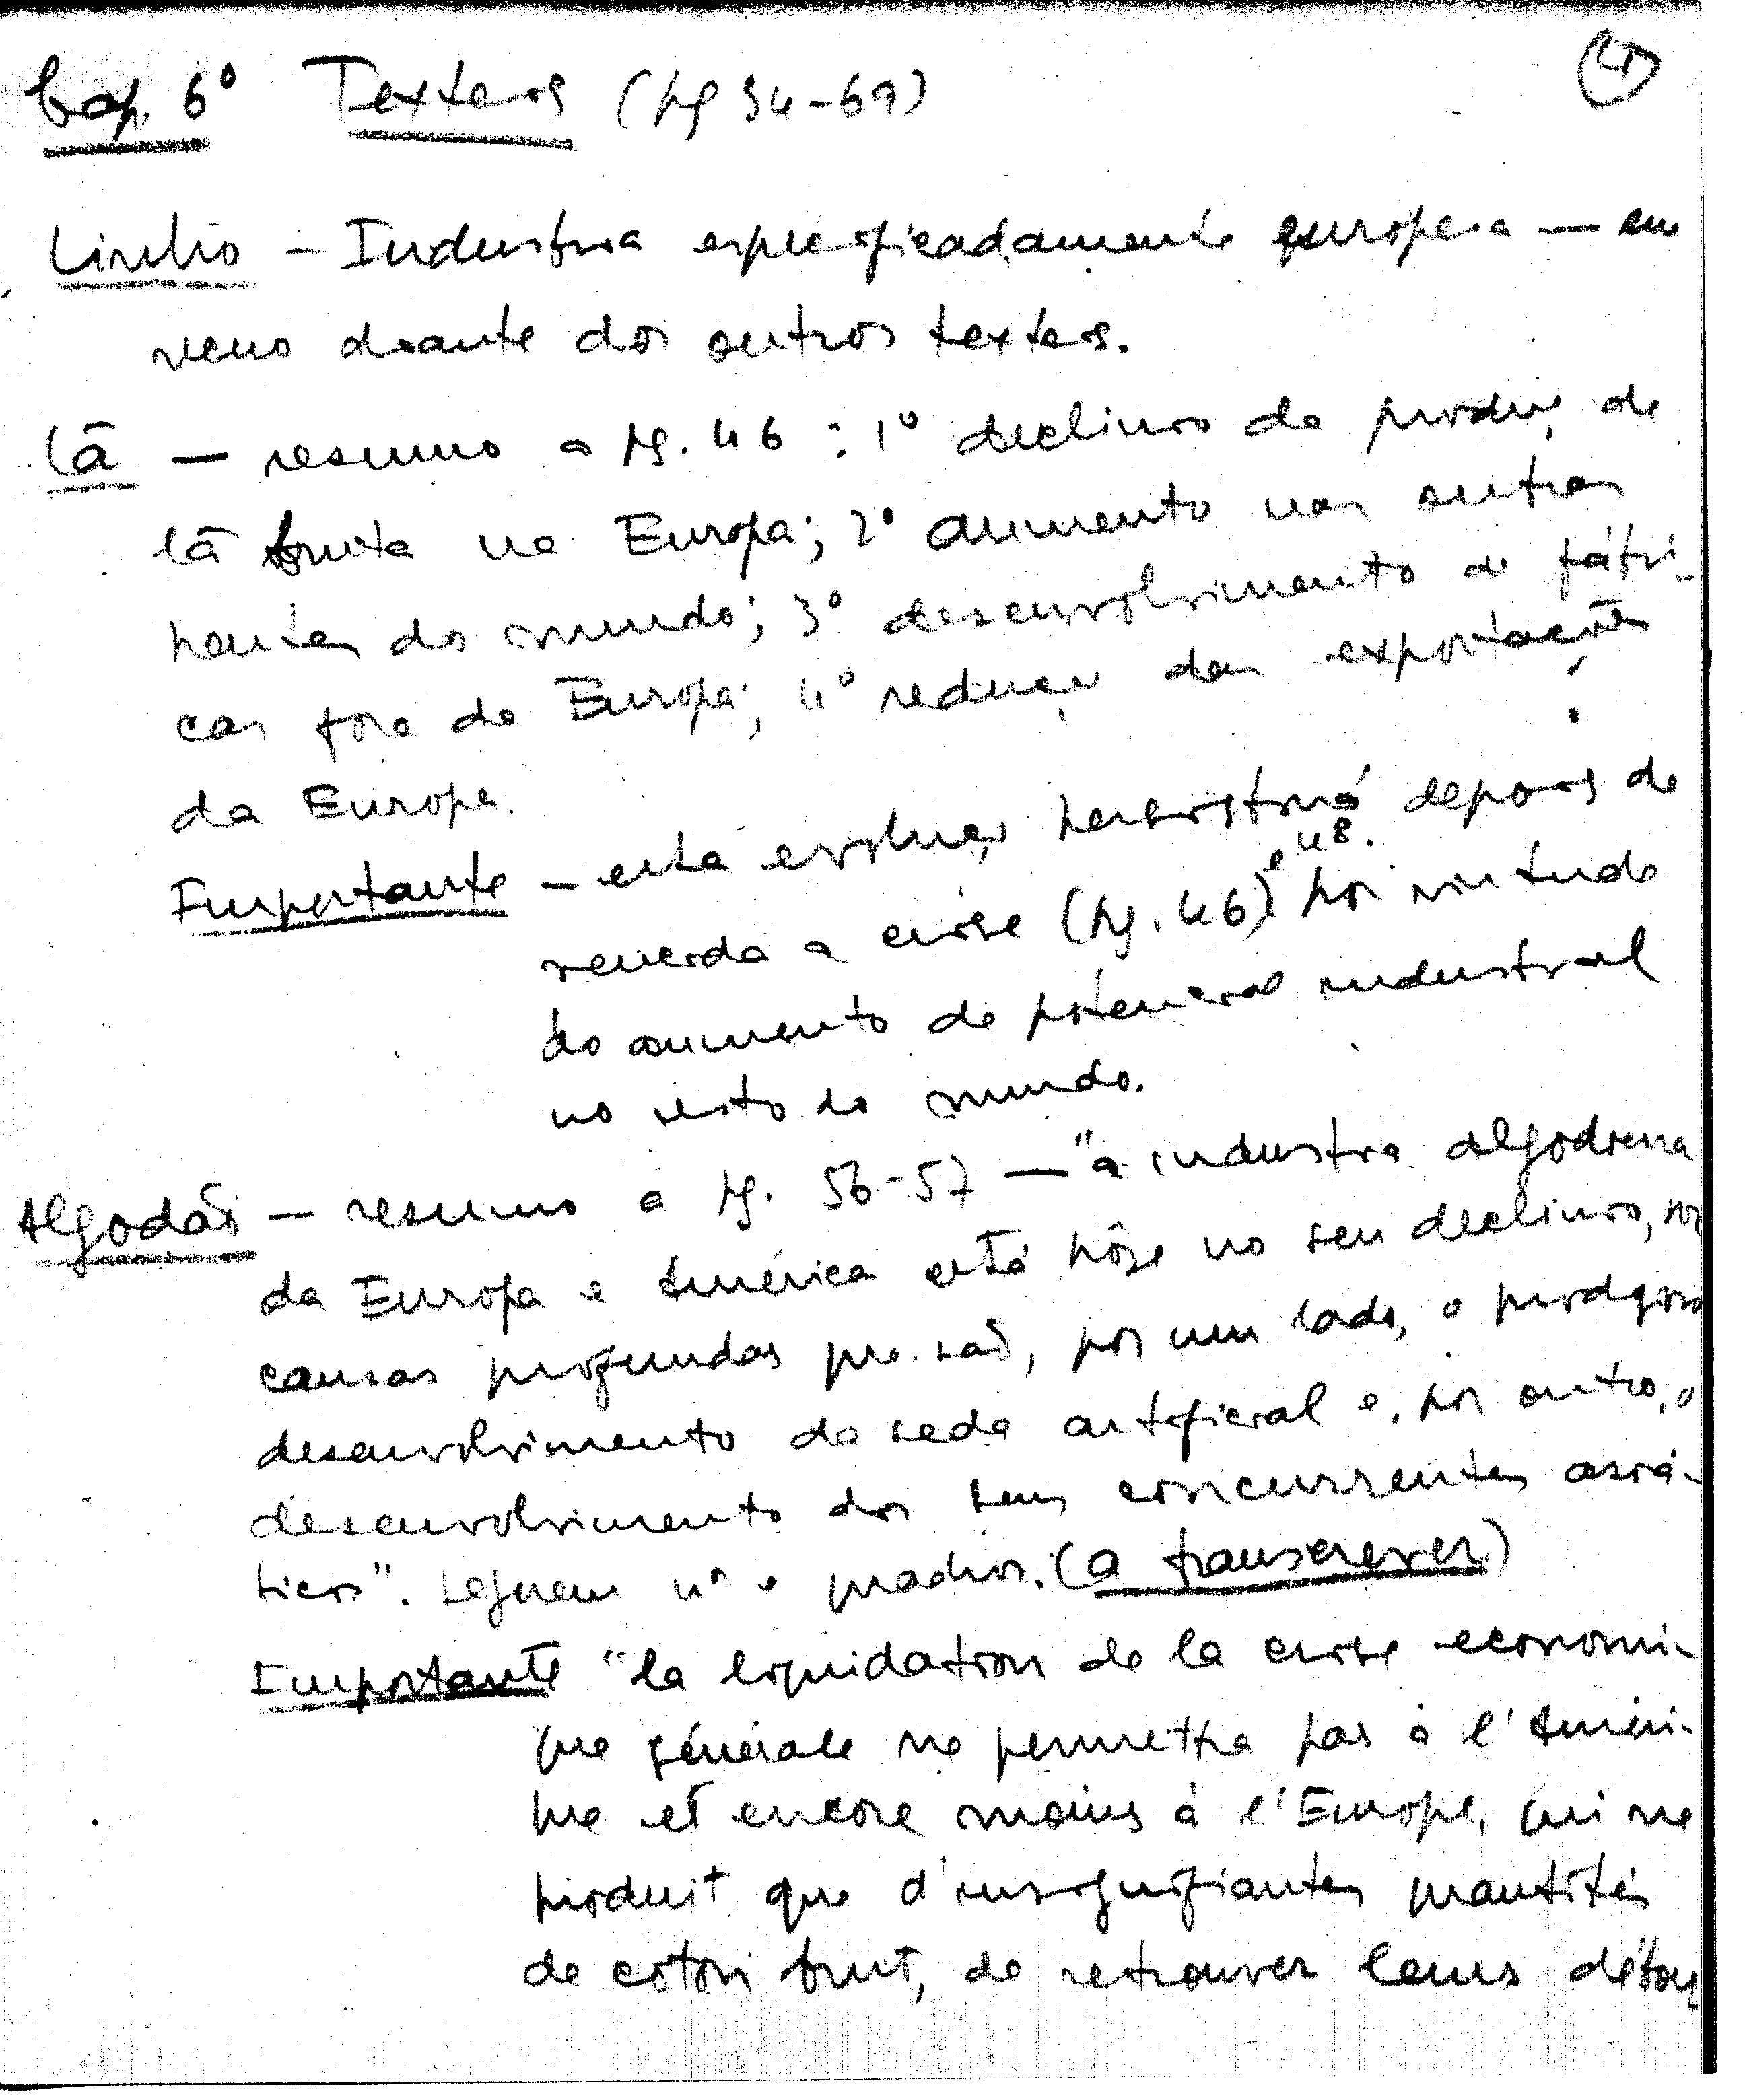 Cap. 6º Texteis (pg 34-69)
Linho - Industria especificadamente europeia - em
recuo diante dos outros texteis.
Lã - resumo a pg. 46 : 1º declinio da produç. de
lã bruta na Europa; 2º aumento nas outras
partes do mundo; 3º desenvolvimento de fábri-
cas fora da Europa; 4º reduçao das exportações
da Europa.
Importante - esta evoluçao persistirá depois de
vencida a crise (pg. 46) e 48. por virtude
do aumento do potencial industrial
no resto do mundo.
Algodão - resumo a pg. 56-57 - "a industria algodoeira
da Europa e América está hôje no seu declinio, por
causas profundas que são, por um lado, o prodigioso
desenvolvimento da seda artificial e, por outro, o
desenvolvimento dos seus concurrentes asiá-
ticos". Seguem nºs e quadros. (a transcrever)
Importante "la liquidation de la crise economi-
que générale ne permettra pas à l'Améri-
que et encore moins à l'Europe, qui ne
produit que d'insignifiantes quantités
de coton brut, de retrouver leurs débou